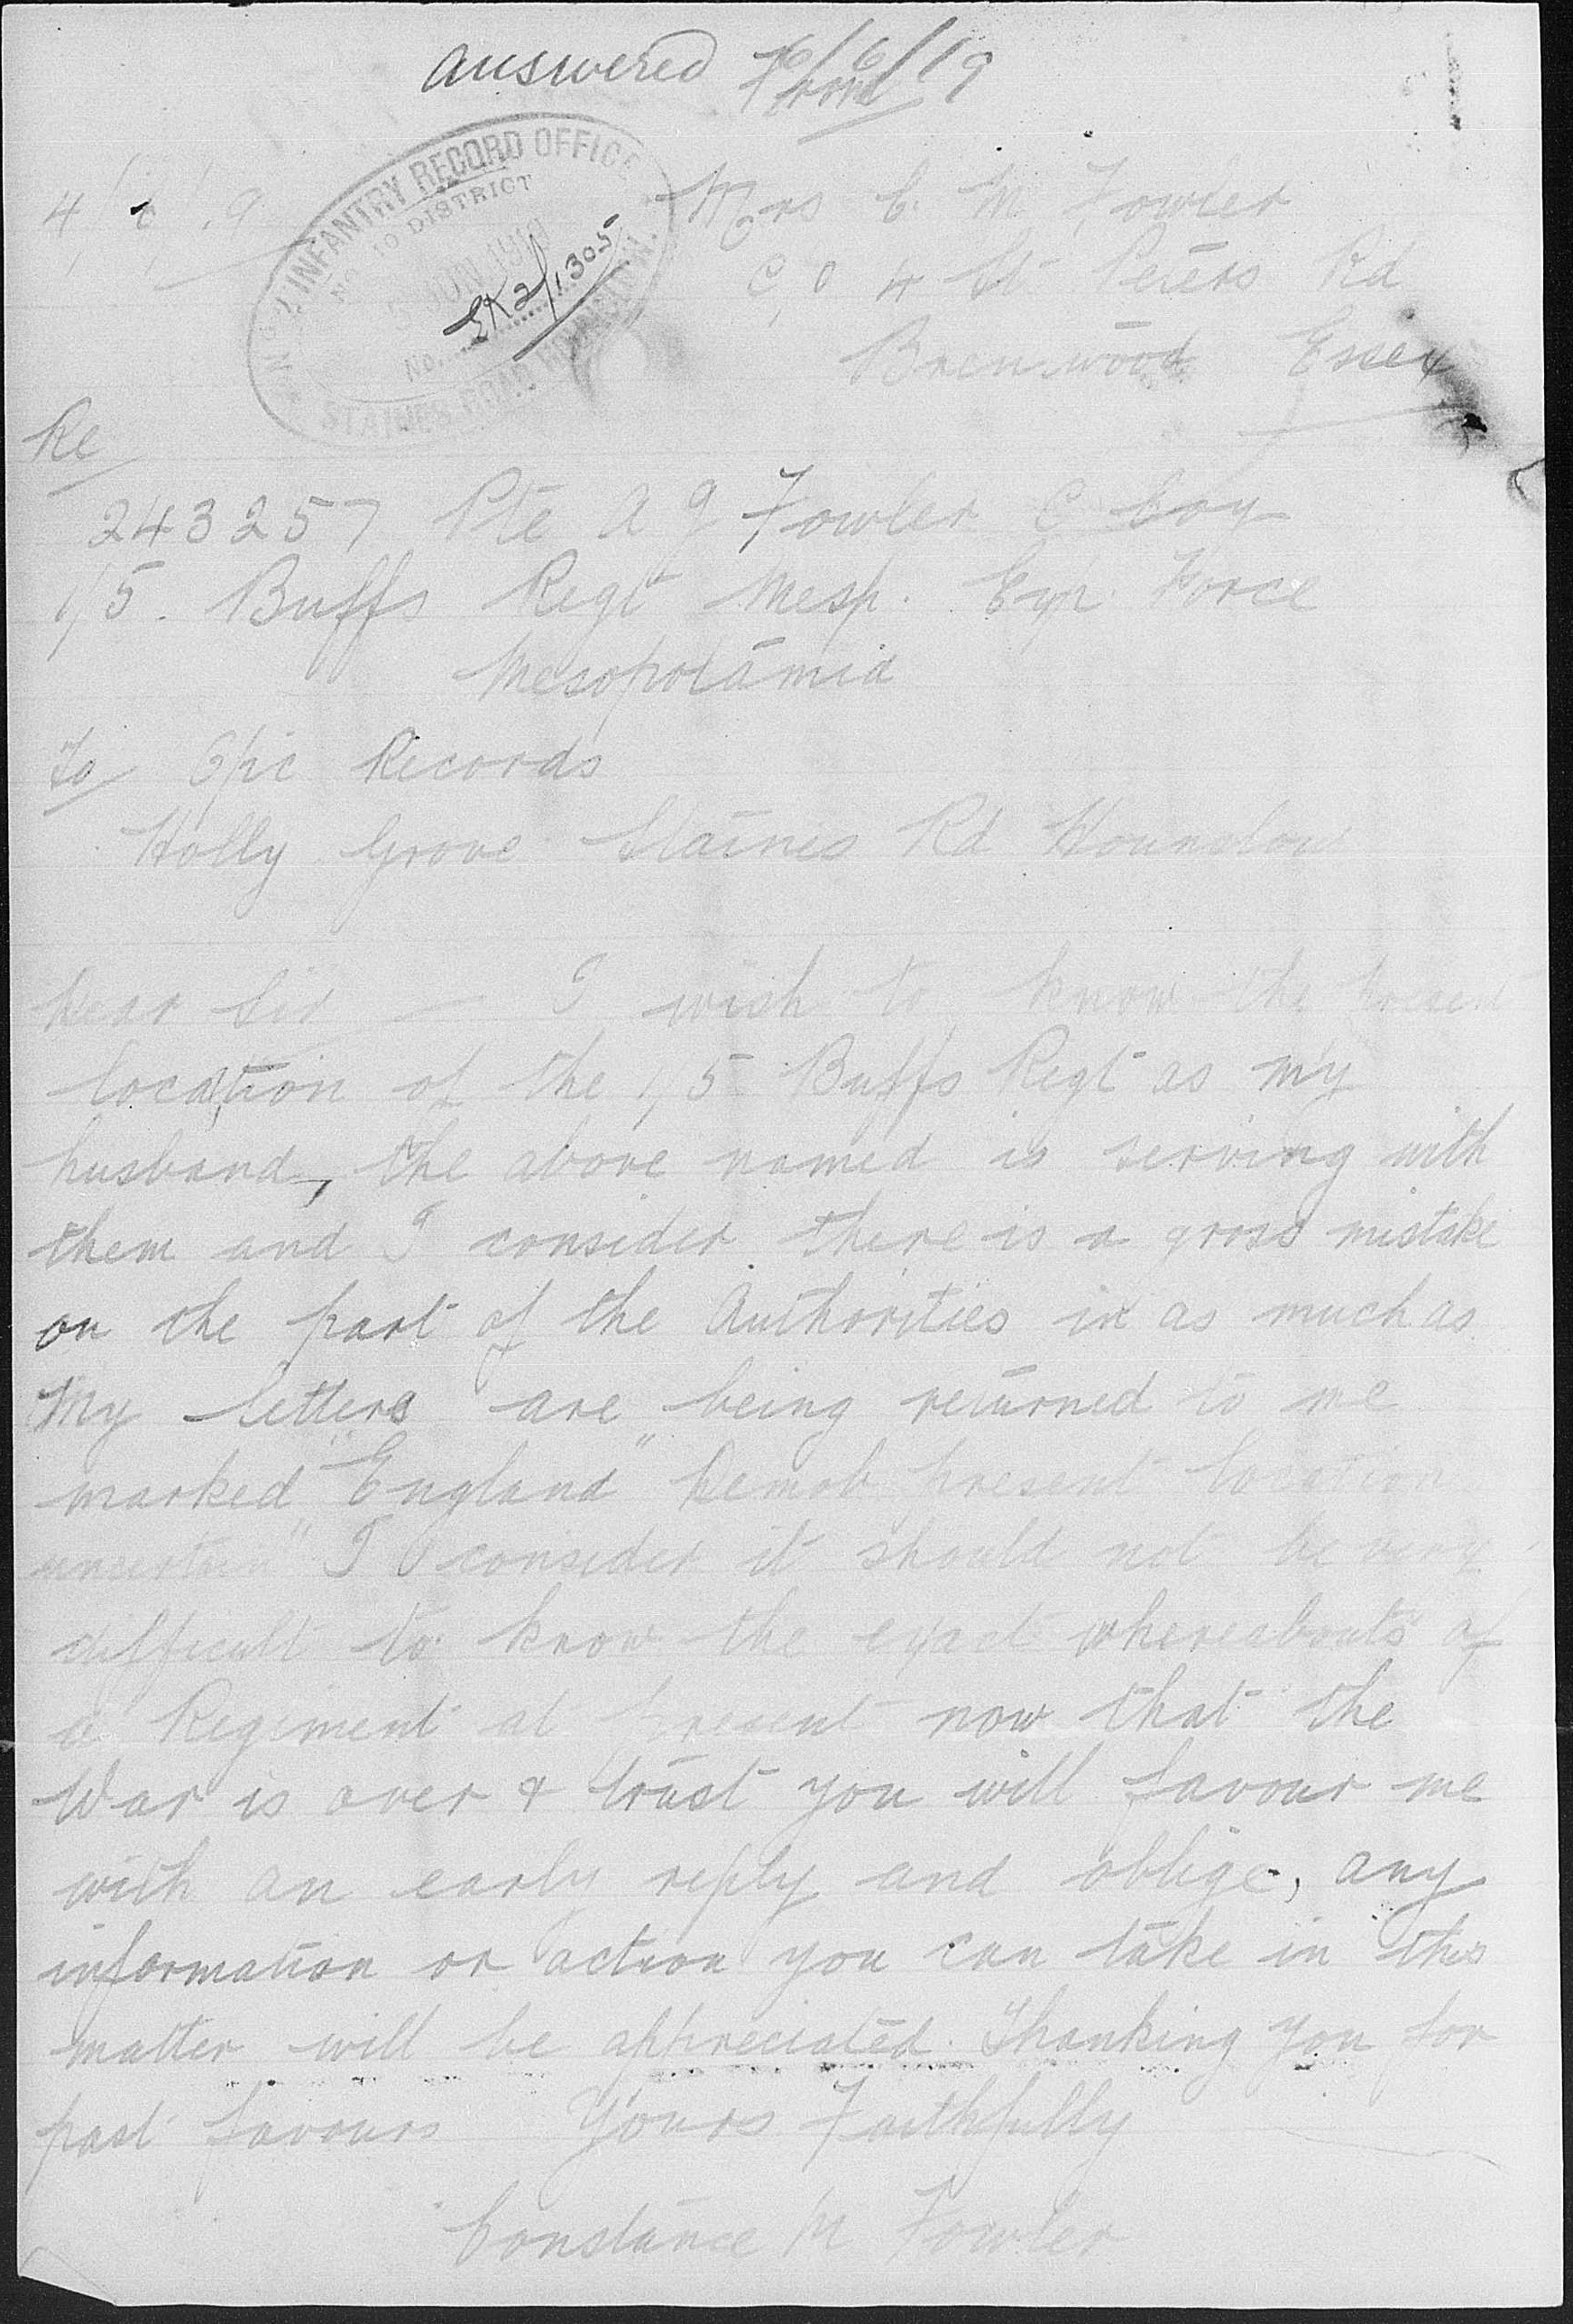 answered 6/6/19
From
Mrs C. M. Fowler
C/O 4 St Peters Rd
Brenwood Essex
No 1 INFANTRY RECORD OFFICE
No. 10 DISTRICT
5 JUN 1919
No. EK2/1305
STAINES ROAD HOUNSLOW.
Re
243257 Pte A G Fowler C Coy
1/5. Buffs Regt Mesp. Exp. Force
Mesopotamia
To O/ic Records
Holly Grove Staines Rd Hounslow
Dear Sir — I wish to know the present
location of the 1/5 Buffs Regt as my
husband, the above named is serving with
them and I consider there is a gross mistake
on the part of the Authorities in as much as
My letters are being returned to me
marked "England" Demob present location
uncertain" I consider it should not be very
difficult to know the exact whereabouts of
a Regiment at present now that the
War is over & trust you will favour me
with an early reply and oblige, any
information or action you can take in this
matter will be appreciated. Thanking you for
past favours Yours Faithfully
Constance M Fowler